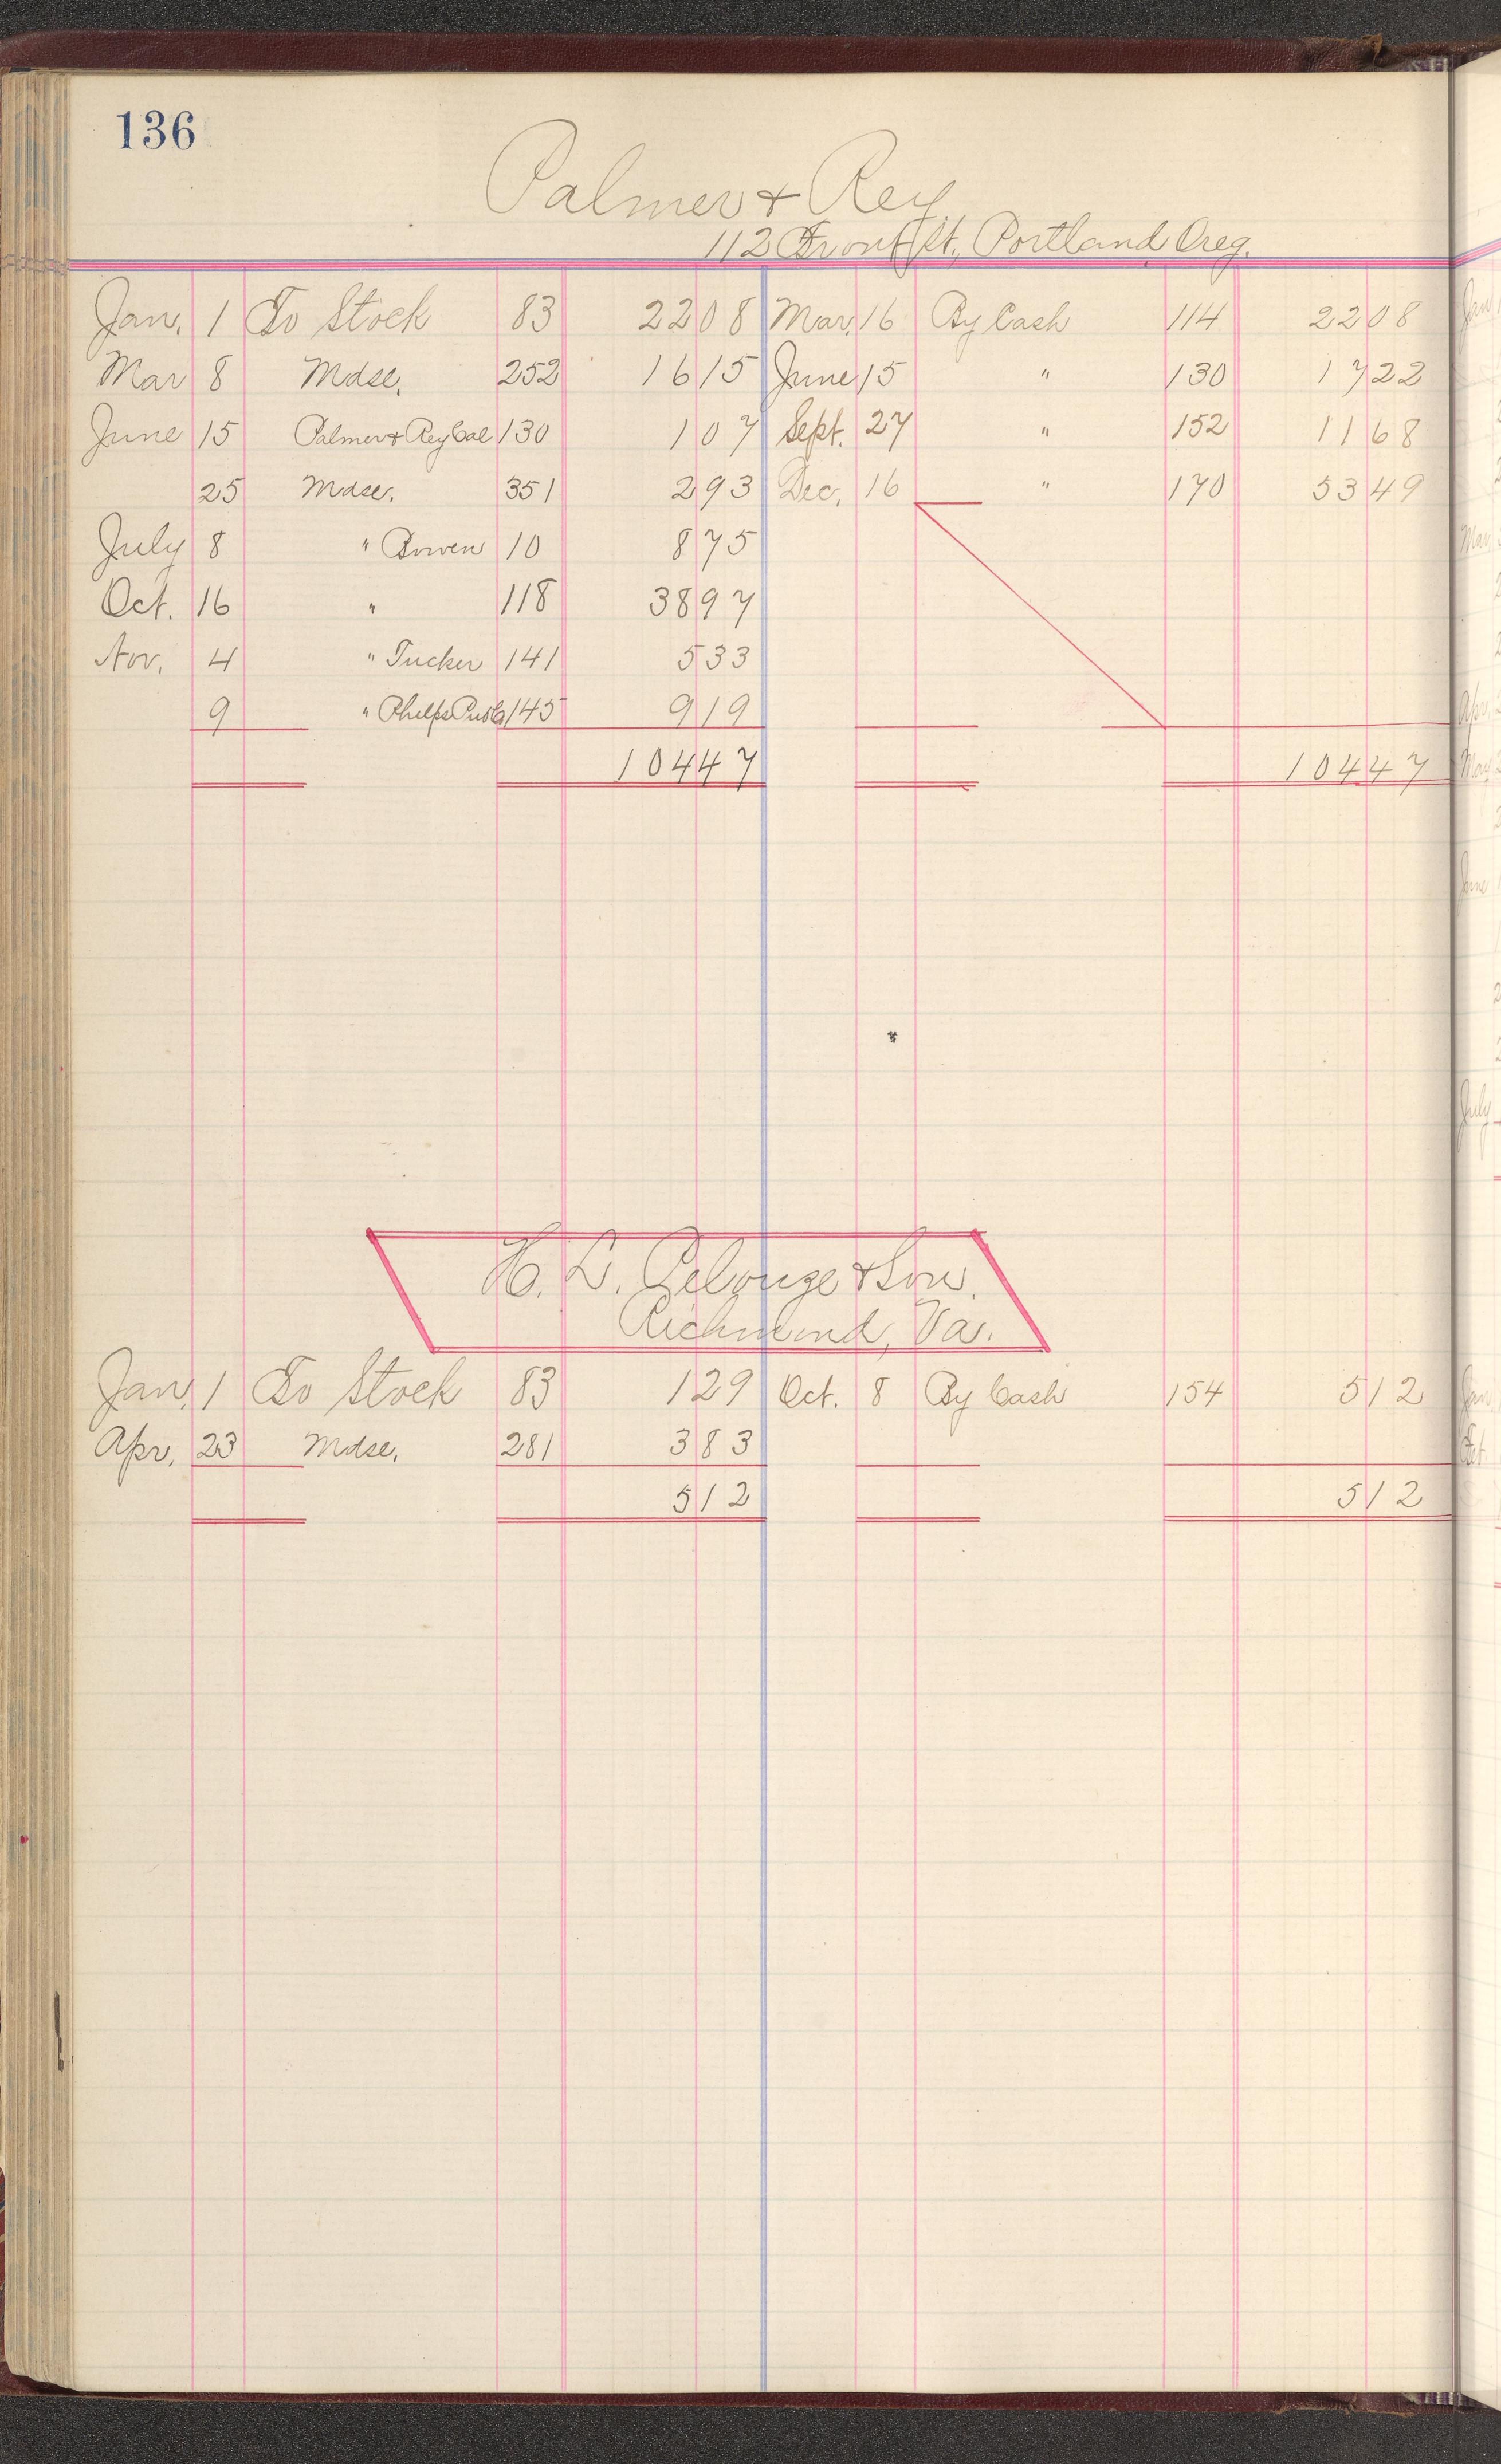 136
Palmer & Rey
112 Front St., Portland Oreg.
Jan. 1 To Stock 83 22 08 Mar. 16 By Cash 114 22 08
Mar 8 Mdse. 252 16 15 June 15 " 130 17 22
June 15 Palmer & Rey Cal 130 1 07 Sept. 27 " 152 11 68
25 Mdse. 351 2 93 Dec. 16 " 170 53 49
July 8 " Bowen 10 8 75
Oct. 16 " 118 38 97
Nov. 4 " Tucker 141 5 33
9 " Phelps Pub Co 145 9 19
104 47 104 47
H. L. Pelouze & Son.
Richmond, Va.
Jan. 1 To Stock 83 1 29 Oct. 8 By Cash 154 5 12
Apr. 23 Mdse. 281 3 83
5 12 5 12